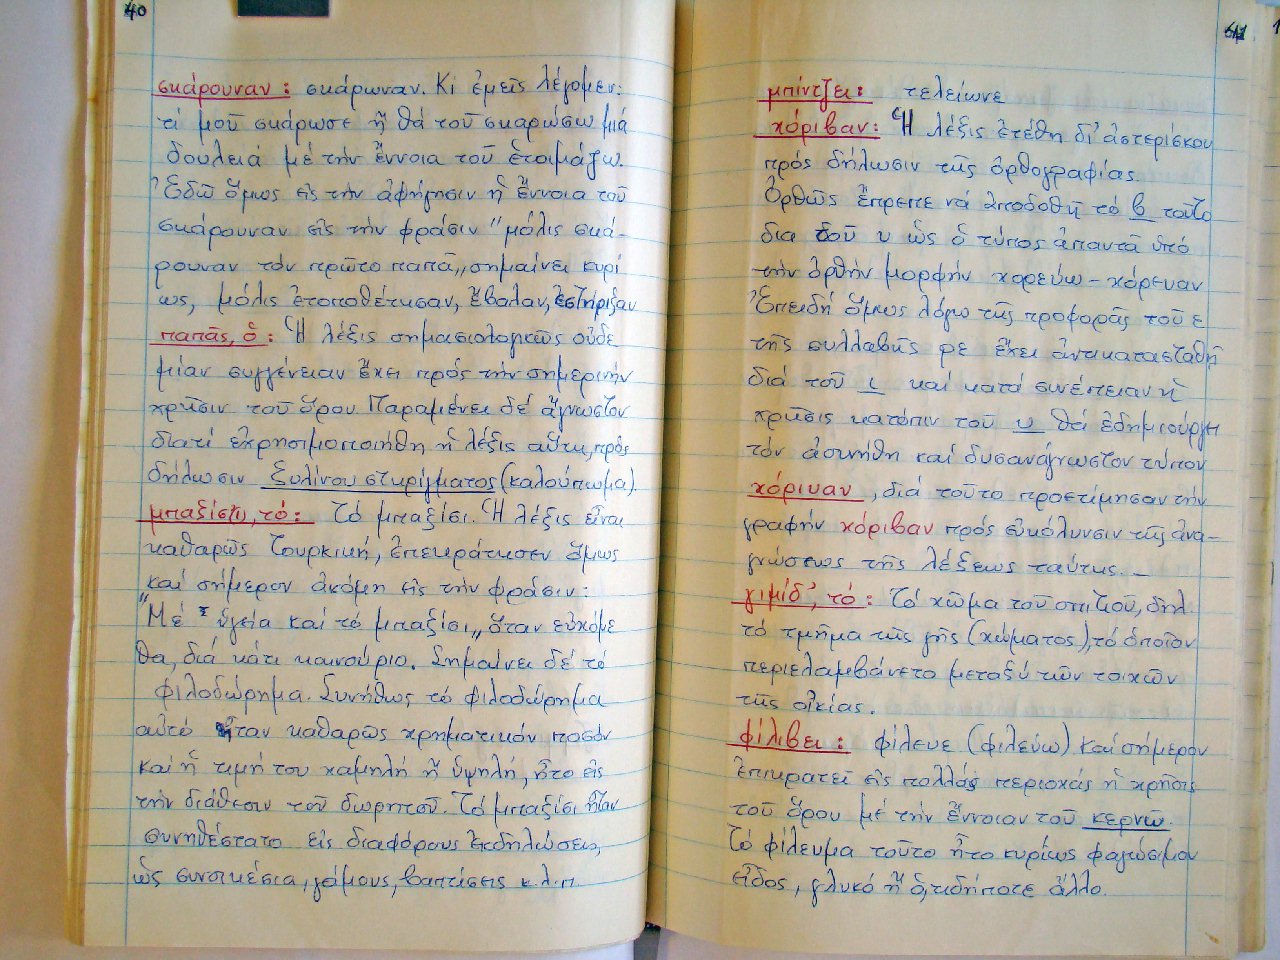 40
σκάρουναν: σκάρωναν. Κι ἐμεῖς λέγομεν:
τί μοῦ σκάρωσε ἤ θά τοῦ σκαρώσω μιά
δουλειά μέ τήν ἔννοια τοῦ ἑτοιμάζω.
Ἐδῶ ὅμως εἰς τήν ἀφήγησιν ἡ ἔννοια τοῦ
σκάρουναν εἰς τήν φράσιν "μόλις σκά-
ρουναν τόν πρῶτο παπᾶ„ σημαίνει κυρί
ως, μόλις ἐτοποθέτησαν, ἔβαλαν, ἐστήριξαν
παπᾶς, ὁ: Ἡ λέξις σημασιολογικῶς οὐδε
μίαν συγγένειαν ἔχει πρός τήν σημερινήν
χρῆσιν τοῦ ὅρου Παραμένει δέ ἄγνωστον
διατί ἐχρησιμοποιήθη ἡ λέξις αὕτη, πρός
δήλωσιν ξυλίνου στηρίγματος (καλούπωμα).
μπαξίσι, τό: Τό μπαξίσι. Ἡ λέξις εἶναι
καθαρῶς Τουρκική, ἐπεκράτησεν ὅμως
καί σήμερον ἀκόμη εἰς τήν φράσιν:
"Μέ ὑγεία καί τό μπαξίσι„ ὅταν εὐχόμε
θα, διά κάτι καινούριο. Σημαίνει δέ τό
φιλοδώρημα. Συνήθως τό φιλοδώρημα
αὐτό ἦταν καθαρῶς χρηματικόν ποσόν
καί ἡ τιμή του χαμηλή ἤ ὑψηλή, ἦτο εἰς
τήν διάθεσιν τοῦ δωρητοῦ. Τό μπαξίσι ἦταν
συνηθέστατο εἰς διαφόρους ἐκδηλώσεις,
ὡς συνοικέσια, γάμους, βαπτίσεις κ.λ.π.
41
μπίντζει: τελείωνε
χόριβαν: Ἡ λέξις ἐτέθη δι' ἀστερίσκου
πρός δήλωσιν τῆς ὀρθογραφίας.
Ὀρθῶς ἔπρεπε νά ἀποδοθῆ τό β τοῦτο
δια τοῦ υ ὡς ὁ τύπος ἀπαντᾶ ὑπό
τήν ὀρθήν μορφήν χορεύω - χόρευαν
Ἐπειδή ὅμως λόγω τῆς προφορᾶς τοῦ ε
τῆς συλλαβῆς ρε ἔχει ἀντικατασταθῆ
διά τοῦ ι καί κατά συνέπειαν ἡ
χρῆσις κατόπιν τοῦ υ θά ἐδημιούργει
τόν ἀσυνήθη καί δυσανάγνωστον τύπον
χόριυαν, διά τοῦτο προετίμησαν τήν
γραφήν χόριβαν πρός εὐκόλυνσιν τῆς ἀνα-
γνώσεως τῆς λέξεως ταύτης. -
γιμίδ', τό: Τό χῶμα τοῦ σπιτιοῦ, δηλ.
τό τμῆμα τῆς γῆς (χώματος), τό ὁποῖον
περιελαμβάνετο μεταξύ τῶν τοιχῶν
τῆς οἰκίας.
φίλιβει: φίλευε (φιλεύω) Καί σήμερον
ἐπικρατεῖ εἰς πολλάς περιοχάς ἡ χρῆσις
τοῦ ὅρου μέ τήν ἔννοιαν τοῦ κερνῶ.
Τό φίλευμα τοῦτο ἦτο κυρίως φαγώσιμον
εἶδος, γλυκό ἤ ὁ,τιδήποτε ἄλλο.